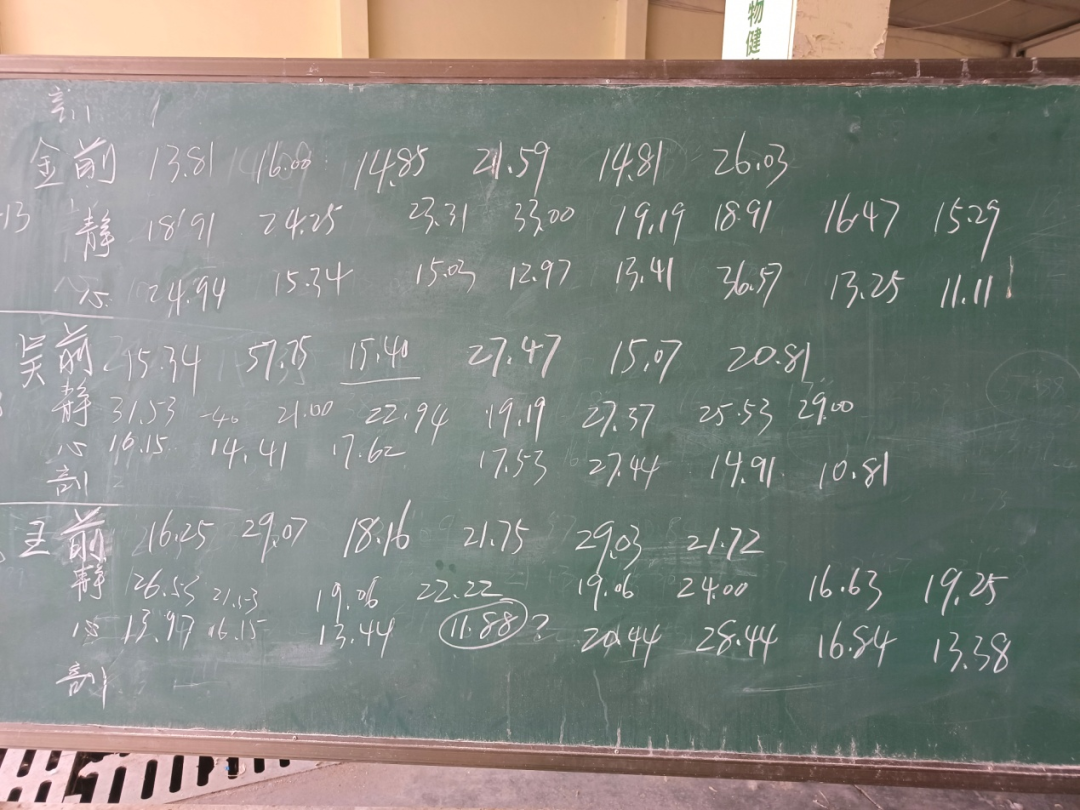 物健
剖 1
金 前 13.81 16.00 14.85 21.59 14.81 26.03
13 静 18.91 24.25 23.31 33.00 19.19 18.91 16.47 15.29
心 24.94 15.34 15.03 12.97 13.41 36.57 13.25 11.11
吴 前 15.34 57.75 15.40 27.47 15.07 20.81
静 31.53 -40 21.00 22.94 19.19 27.37 25.53 29.00
心 16.15 14.41 17.62 17.53 27.44 14.91 10.81
剖
王 前 16.25 29.07 18.16 21.75 29.03 21.72
静 26.53 21.53 19.06 22.22 19.06 24.00 16.63 19.25
心 13.97 16.15 13.44 11.88? 20.44 28.44 16.84 13.38
剖